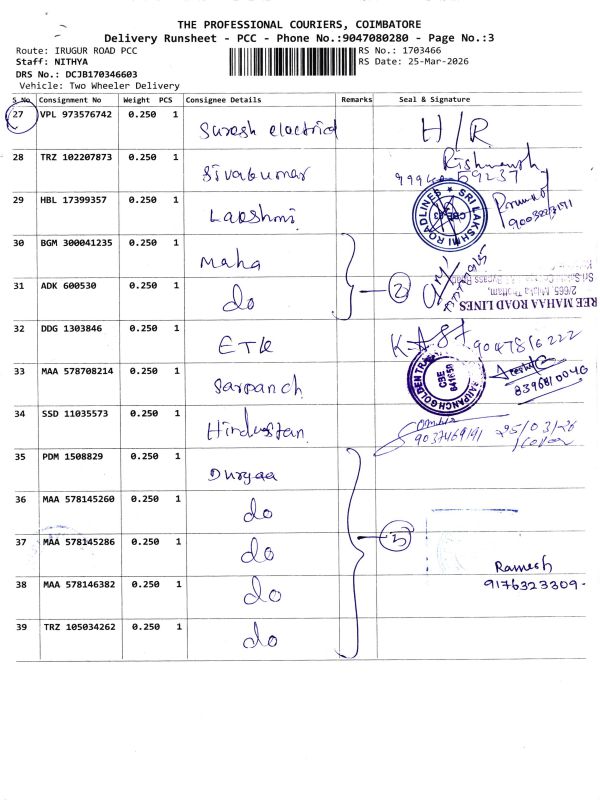 THE PROFESSIONAL COURIERS, COIMBATORE
Delivery Runsheet - PCC - Phone No.:9047080280 - Page No.:3
Route: IRUGUR ROAD PCC
RS No.: 1703466
Staff: NITHYA
RS Date: 25-Mar-2026
DRS No.: DCJB170346603
Vehicle: Two Wheeler Delivery
S No Consignment No Weight PCS Consignee Details Remarks Seal & Signature
27 VPL 973576742 0.250 1 Suresh electrical H/R
28 TRZ 102207873 0.250 1 Sivakumar
29 HBL 17399357 0.250 1 Lakshmi
SRI LAKSHMI ROADLINES
30 BGM 300041235 0.250 1 Maha
31 ADK 600530 0.250 1 do 2
REE MAHAA ROAD LINES
32 DDG 1303846 0.250 1 ETK
33 MAA 578708214 0.250 1 Sarpanch
8396810040
34 SSD 11035573 0.250 1 Hindustan
9037469191 25/03/26
35 PDM 1508829 0.250 1 Durgaa
36 MAA 578145260 0.250 1 do
37 MAA 578145286 0.250 1 do 5
Ramesh
38 MAA 578146382 0.250 1 do 9176323309-
39 TRZ 105034262 0.250 1 do